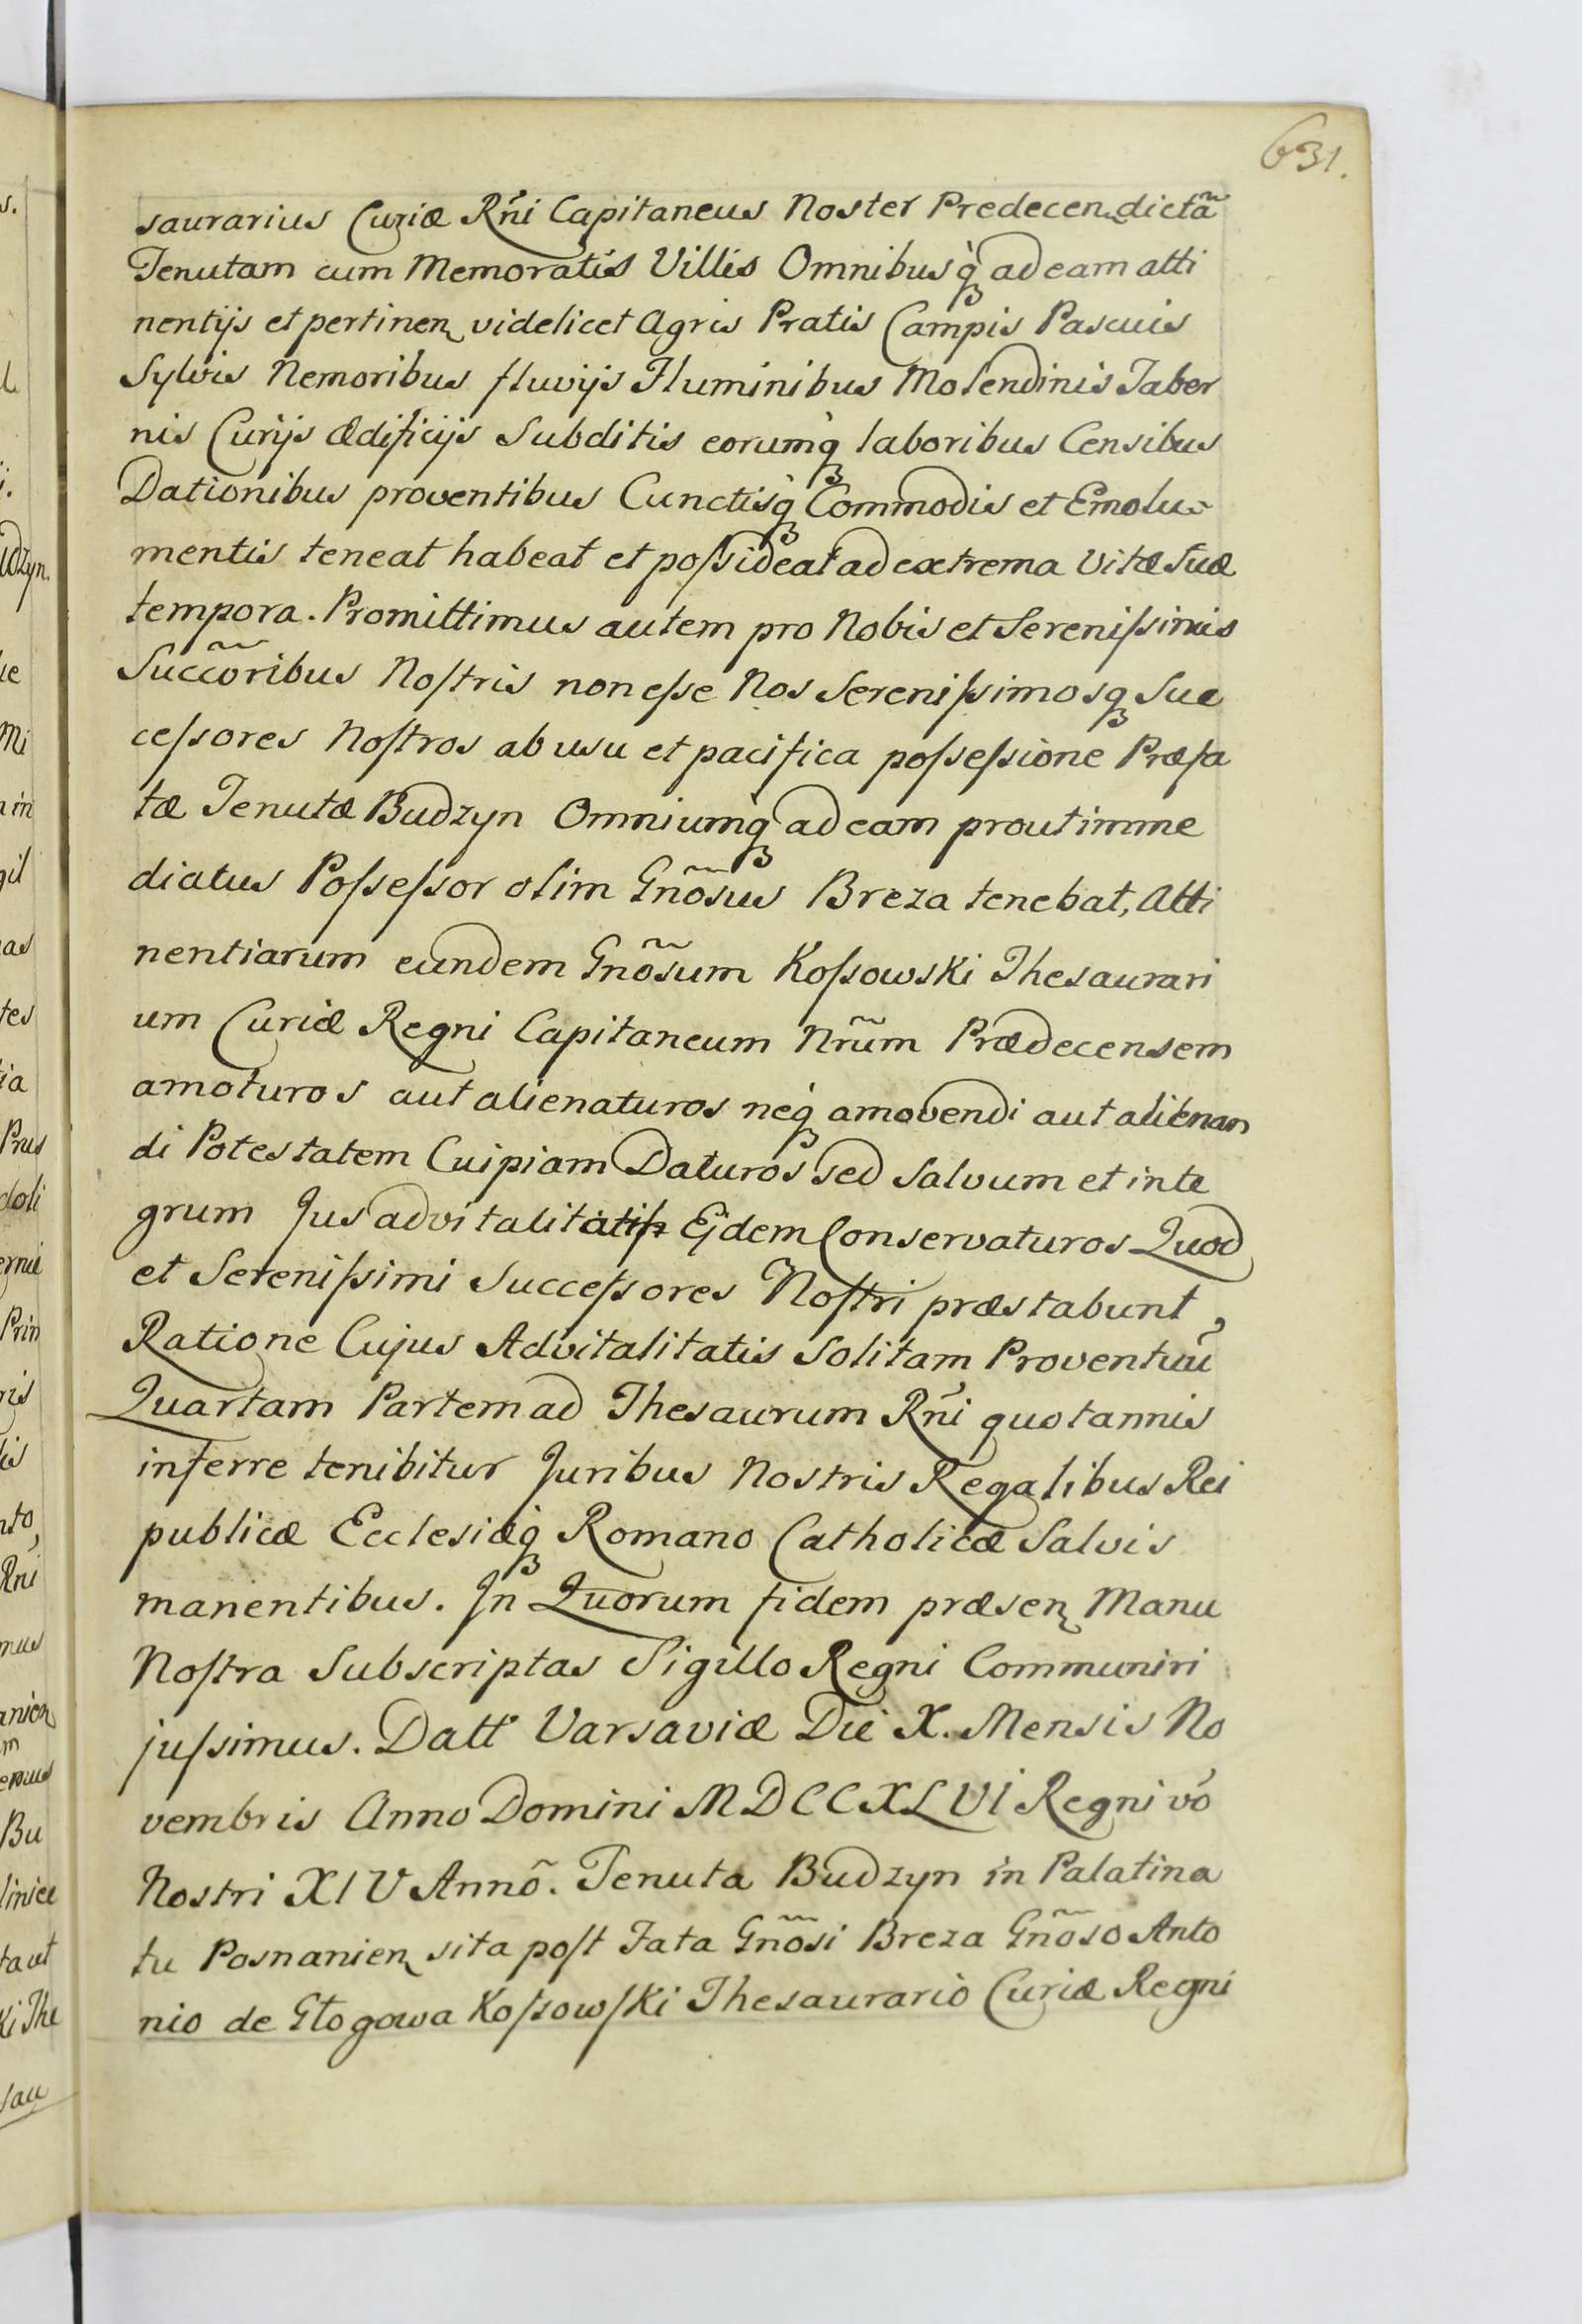 631.
saurarius Curiæ Rńi Capitaneus Noster Predecen dictã
Tenutam cum Memoratis Villis Omnibusq̀ ad eam atti
nentijs et pertinen videlicet Agris Pratis Campis Pascuis
Sylvis Nemoribus fluvijs Fluminibus Molendinis Taber
nis Curijs Ædificijs Subditis eorumq̀ laboribus Censibus
Dationibus proventibus Cunctisq̀ Commodis et Emolu-
mentis teneat habeat et poſsideat ad extrema Vitæ suæ
tempora. Promittimus autem pro Nobis et Sereniſsimis
Succõribus Noſtris non eſse Nos Sereniſsimosq Suc
ceſsores Noſtros ab usu et pacifica poſseſsione Præfa
tæ Tenutæ Budzyn Omniumq̀ ad eam prout imme
diatus Poſseſsor olim Gnõsus Breza tenebat, Atti
nentiarum eundem Gnõsum Koſsowski Thesaurari
um Curiæ Regni Capitaneum Nrũm Prædecensem
amoturos aut alienaturos neq̀ amovendi aut alienan
di Potestatem Cuipiam Daturos sed Salvum et inte
grum Jus advitalitatis Ejdem Conservaturos Quod
et Sereniſsimi Succeſsores Noſtri præstabunt,
Ratione Cujus Advitalitatis Solitam Proventuũ
Quartam Partem ad Thesaurum Rńi quotannis
inferre tenibitur Juribus Nostris Regalibus Rei
publicæ Ecclesiæq̀ Romano Catholicæ Salvis
manentibus. Jn Quorum fidem præsen Manu
Noſtra Subscriptas Sigillo Regni Communiri
juſsimus. Datt Varsaviæ Die X. Mensis No
vembris Anno Domini MDCCXLVI Regni vó
Nostri XIV Annõ. Tenuta Budzyn in Palatina
tu Posnanien sita poſt Fata Gnõsi Breza Gnõso Anto
nio de Głogowa Koſsowſki Thesaurario Curiæ Regni